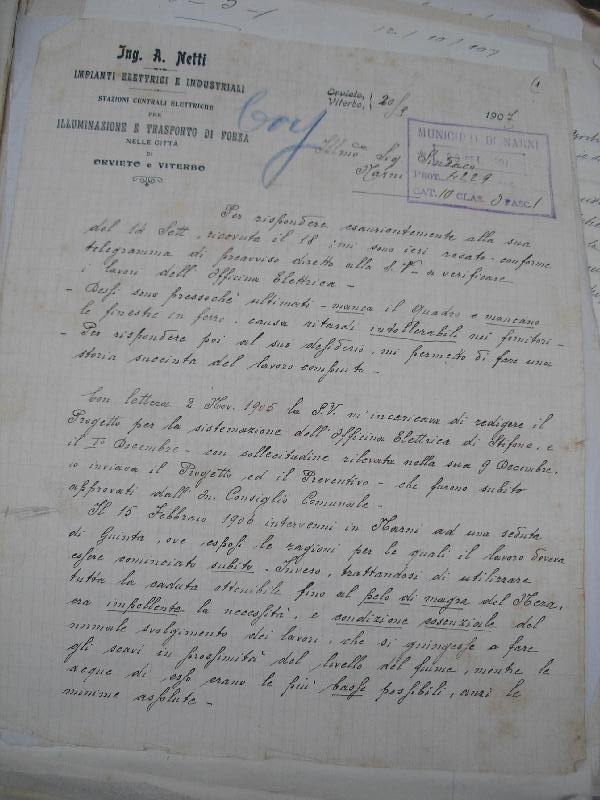 Ing. A. Netti
IMPIANTI ELETTRICI E INDUSTRIALI
STAZIONI CENTRALI ELETTRICHE
PER
ILLUMINAZIONE E TRASPORTO DI FORZA
NELLE CITTÀ
DI
ORVIETO e VITERBO
Orvieto,
Viterbo, 20/9 1907
MUNICIPIO DI NARNI
PROT. 4229
CAT. 10 CLAS. 3 FASC. 1
Illmo Sig. Sindaco
Narni
Per rispondere esaurientemente alla sua
del 14 Sett. ricevuta il 18, mi sono ieri recato conforme
telegramma di preavviso diretto alla S.V. a verificare
i lavori dell'Officina Elettrica -
- Dessi sono pressochè ultimati - manca il Quadro e mancano
le finestre in ferro, causa ritardi intollerabili nei fornitori -
- Per rispondere poi al suo desiderio, mi permetto di fare una
storia succinta del lavoro compiuto -
Con lettera 2 Nov. 1905 la S.V. m'incaricava di redigere il
Progetto per la sistemazione dell'Officina Elettrica di Stifone, e
il 1o Decembre - con sollecitudine rilevata nella sua 9 Decembre,
io inviava il Progetto ed il Preventivo - che furono subito
approvati dall'On. Consiglio Comunale -
Il 15 Febbraio 1906 intervenni in Narni ad una seduta
di Giunta, ove esposi le ragioni, per le quali il lavoro doveva
essere cominciato subito - Invero, trattandosi di utilizzare
tutta la caduta ottenibile fino al pelo di magra del Nera,
era impellente la necessità, e condizione essenziale del
normale svolgimento dei lavori, che si giungesse a fare
gli scavi in prossimità del livello del fiume, mentre le
acque di esso erano le più basse possibili, anzi le
minime assolute -